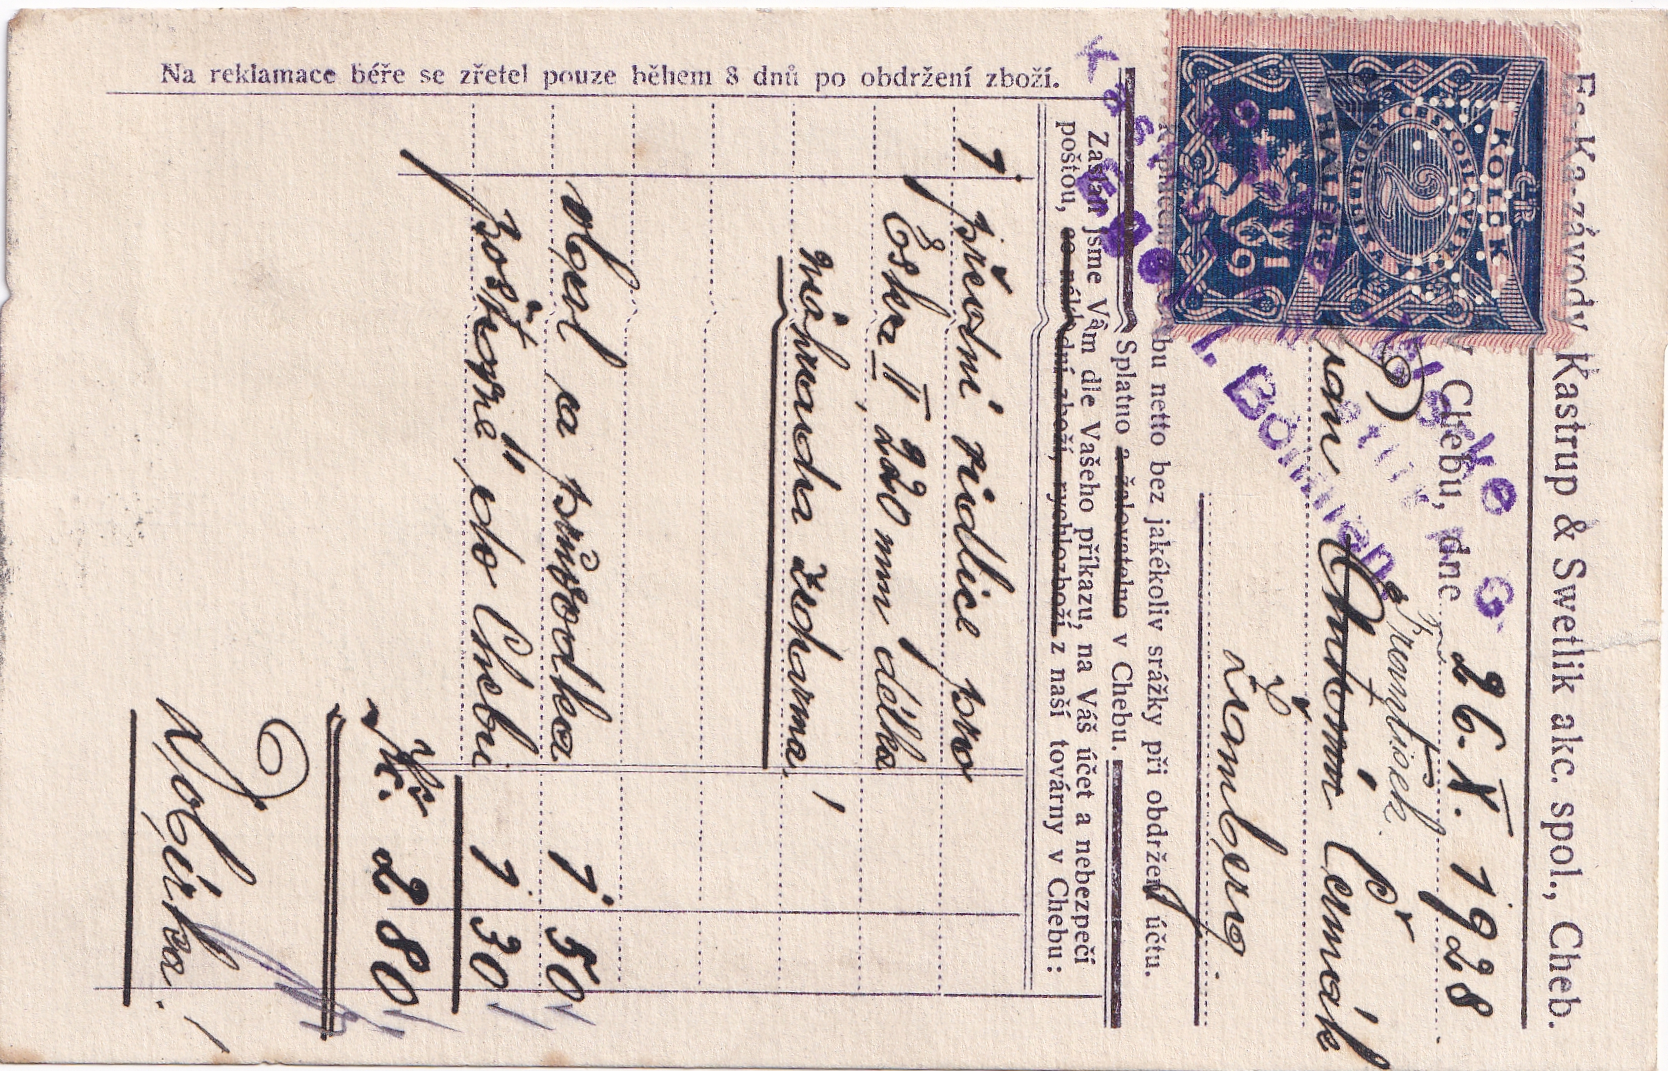 Es-Ka-závody Kastrup & Swetlik akc. spol., Cheb.
V Chebu, dne 26. X. 1928
KOLEK
ČSR
REPUBLIKY ČESKOSLOVENSKÉ
2
HALÉŘE
1919
Kastrup & Swetlik A. G.
Eger i. Böhmen
František
Antonín Čermák
Žamberg.
netto bez jakékoliv srážky při obdržení účtu.
Splatno a žalovatelno v Chebu.
Zaslali jsme Vám dle Vašeho příkazu, na Váš účet a nebezpečí
poštou, co nákladní zboží, rychlozboží z naší továrny v Chebu:
1. přední vidlice pro
Eska II 220 mm délka
náhrada zdarma!
obal a průvodka 1 50
poštovné do Chebu 1 30
Kč. 2 80
Dobírka!
Na reklamace béře se zřetel pouze během 8 dnů po obdržení zboží.